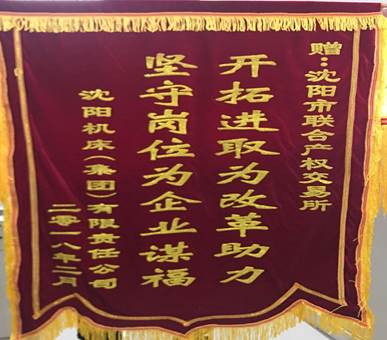 赠：沈阳市联合产权交易所
开拓进取为改革助力
坚守岗位为企业谋福
沈阳机床（集团）有限责任公司
二零一八年二月